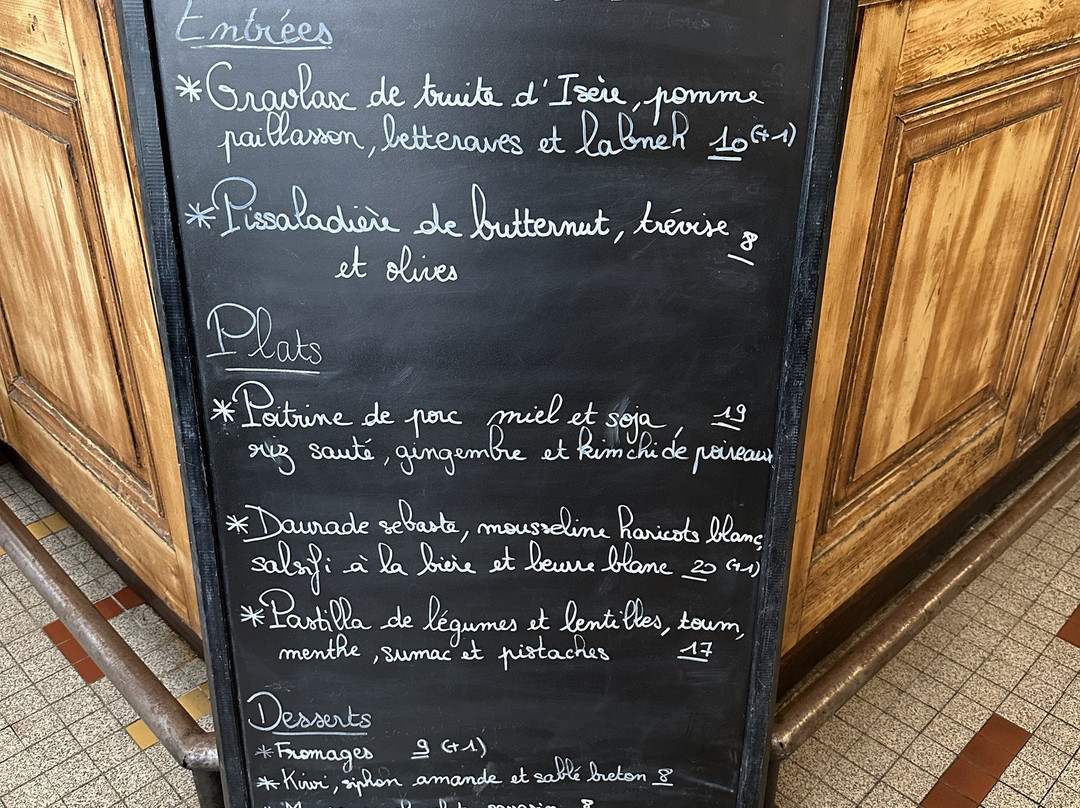 Entrées
* Gravlax de truite d'Isère, pomme
paillasson, betteraves et labneh 10 (+1)
* Pissaladière de butternut, trévise 8
et olives
Plats
* Poitrine de porc miel et soja, 19
riz sauté, gingembre et kimchi de poireaux
* Daurade sebaste, mousseline haricots blancs
salsifi à la bière et beurre blanc 20 (+1)
* Pastilla de légumes et lentilles, toum,
menthe, sumac et pistaches 17
Desserts
* Fromages 9 (+1)
* Kiwi, siphon amande et sablé breton 8
8